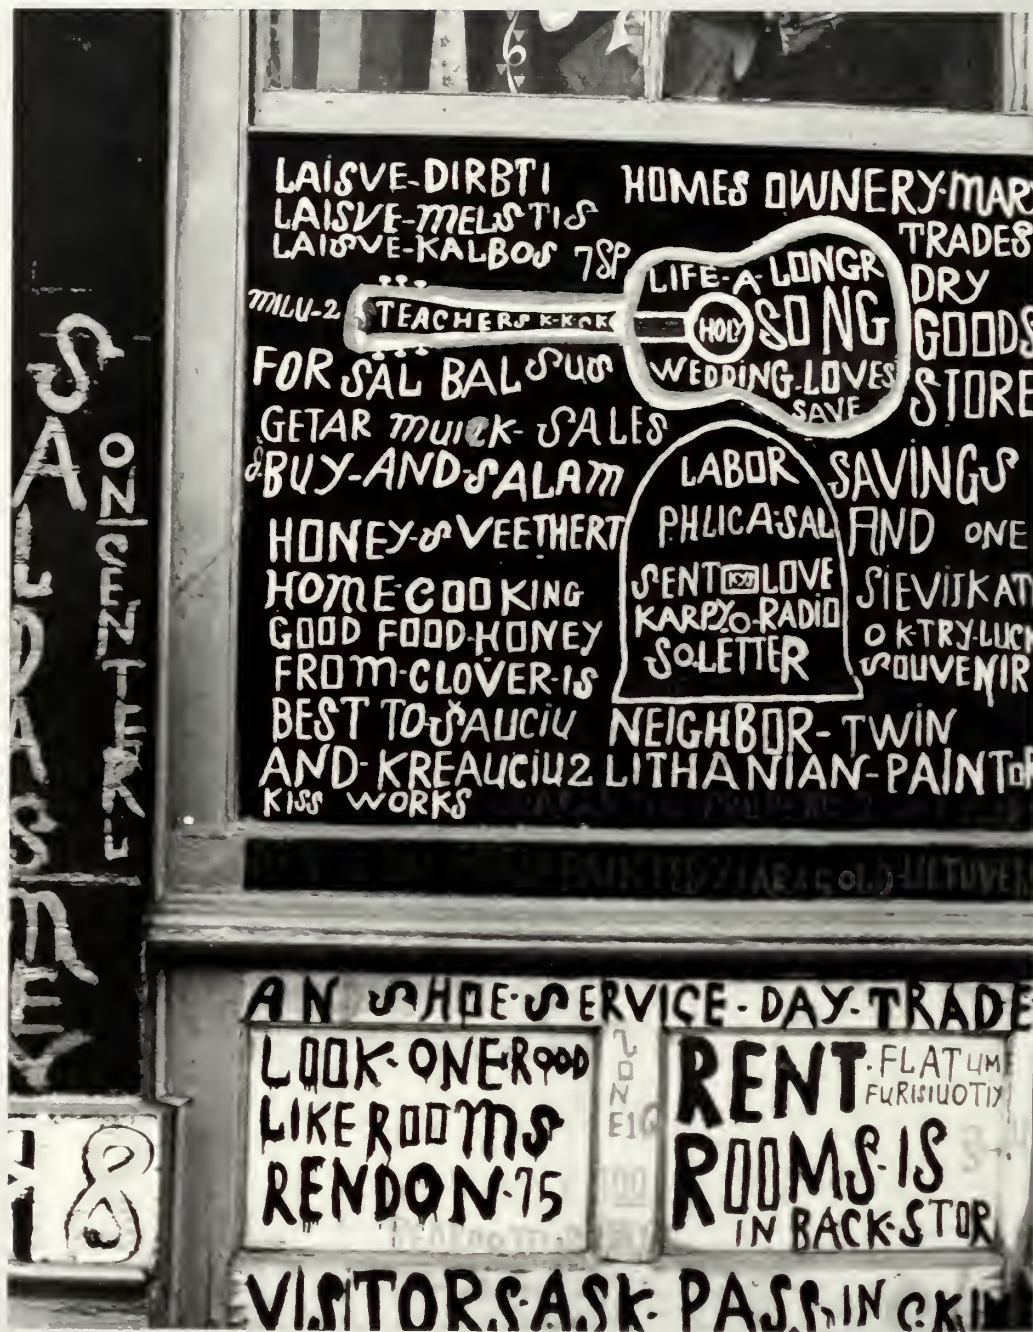 SALDAS MEY
ONSENTER
LAISVE-DIRBTI
LAISVE-MELSTIS
LAISVE-KALBOS 7SP
MILU-2
TEACHERS K-K-CK
FOR SAL BAL SUS
GETAR
SALES
& BUY-AND-SALAM
HONEY-S VEETHERT
HOME-COOKING
GOOD FOOD-HONEY
FROM-CLOVER-IS
BEST TO-ŠAUCIU
AND-KREAUCIU2
KISS WORKS
HOMES OWNERY-MAR
TRADES
DRY
GOODS
STORE
LIFE-A-LONGR
HOLY SONG
WEDDING-LOVES
SAVE
LABOR
PHLICA-SAL
SENT KISS LOVE
KARPYO-RADIO
SO-LETTER
SAVINGS
AND ONE
SIEVIJKAT
OK-TRY-LUCK
SOUVENIR
NEIGHBOR-TWIN
LITHANIAN-PAINTOR
AN SHOE-SERVICE-DAY-TRADE
LOOK-ONE-ROOD
LIKE ROOMS
RENDON-75
ZONE 16
RENT-FLAT UM
ROOMS-IS
IN BACK-STOR
8
VISITORS-ASK-PASS-IN